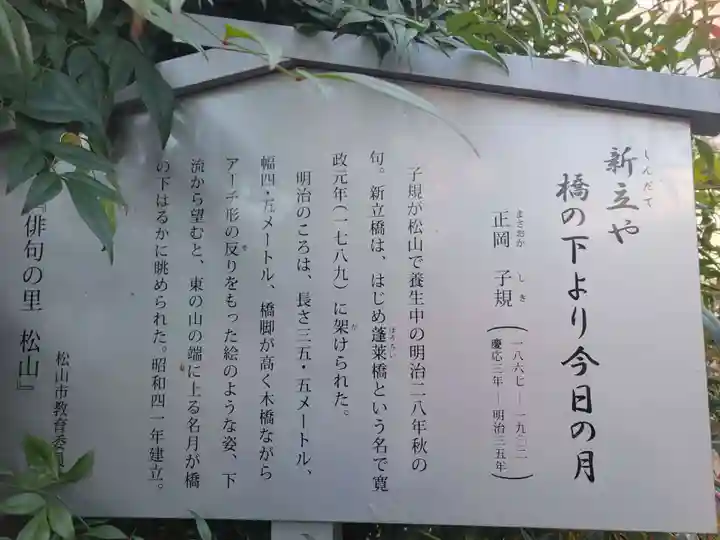 しんだて
新立や
橋の下より今日の月
まさおか しき
正岡 子規
(一八六七―一九〇二
慶応三年―明治三五年)
子規が松山で養生中の明治二八年秋の
句。新立橋は、はじめ蓬莱橋という名で寛
ほうらい
政元年(一七八九)に架けられた。
か
明治のころは、長さ三五・五メートル、
幅四・五メートル、橋脚が高く木橋ながら
アーチ形の反りをもった絵のような姿、下
そ
流から望むと、東の山の端に上る名月が橋
は
の下はるかに眺められた。昭和四一年建立。
松山市教育委員
『俳句の里 松山』